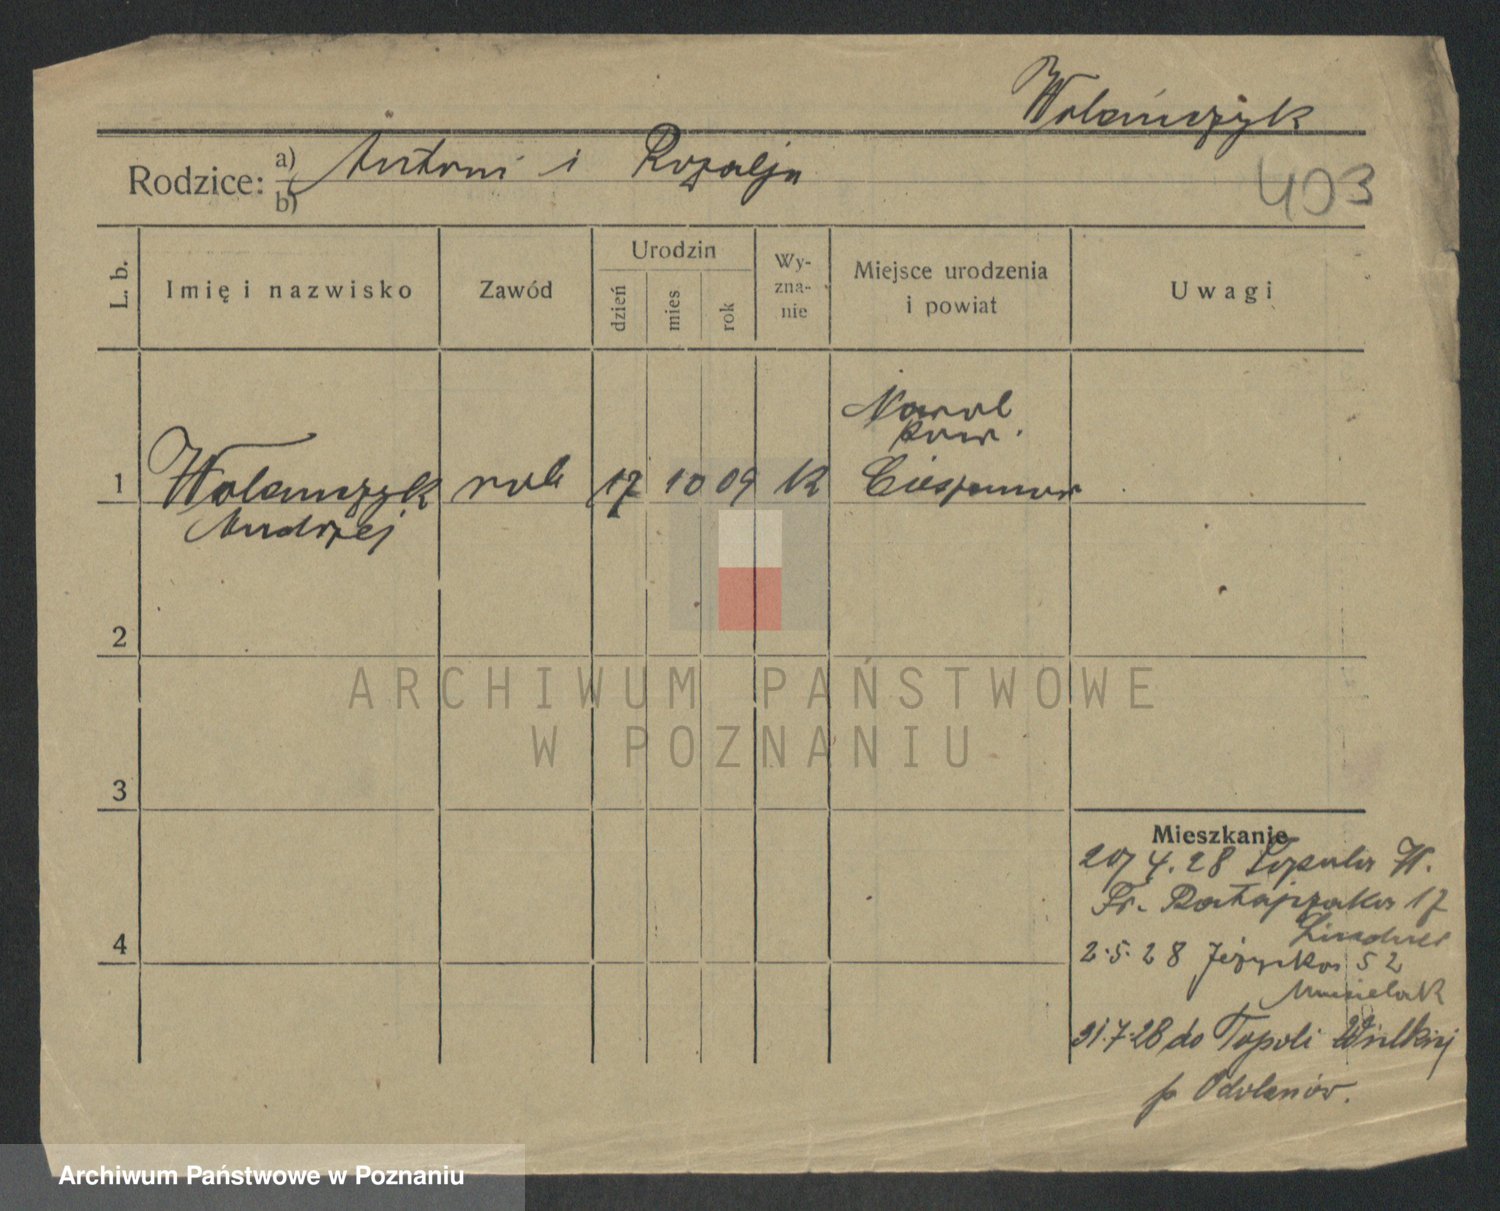 Wolańczyk
Rodzice: a) Antoni i Rozalja
b)
403
L. b.
Imię i nazwisko
Zawód
Urodzin
dzień
mies
rok
Wy-
zna-
nie
Miejsce urodzenia
i powiat
Uwagi
Narol
pow.
1 Wolańczyk rob 17 10 09 K Cieszanów
Andrzej
2
ARCHIWUM PAŃSTWOWE
W POZNANIU
3
Mieszkanie
20/4.28 Topola W.
Fr. Ratajczaka 17
4
2.5.28 Jeżycka 52
Musielak
31.7.28 do Topoli Wielkiej
p Odolanów.
Archiwum Państwowe w Poznaniu